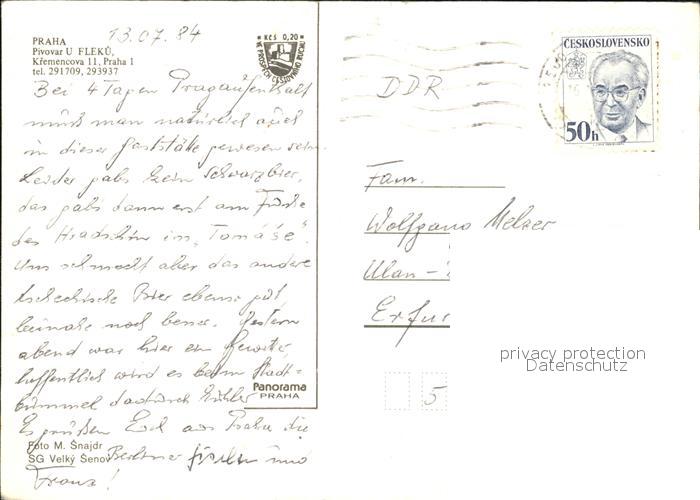 13.07.84
PRAHA
Pivovar U FLEKŮ,
Křemencova 11, Praha 1
tel. 291709, 293937
Kčs 0,20
VE PROSPĚCH CESTOVNÍHO RUCHU
Bei 4 Tagen Pragaufenthalt
muß man natürlich auch
in dieser Gaststätte gewesen sein.
Leider gabs kein Schwarzbier,
das gabs dann erst am Fuße
des Hradschin im „Tomáše".
Uns schmeckt aber das andere
tschechische Bier ebenso gut
beinahe noch besser. Gestern
abend war hier ein Gewitter,
hoffentlich wird es beim Stadt=
bummel dadurch kühler
Es grüßen Euch aus Praha die
Berliner und
Franz!
Panorama
PRAHA
Foto M. Šnajdr
SG Velký Šenov
ČESKOSLOVENSKO
50h
DDR
Fam.
Wolfgang Melzer
Ulan-
Erfur
5
privacy protection
Datenschutz